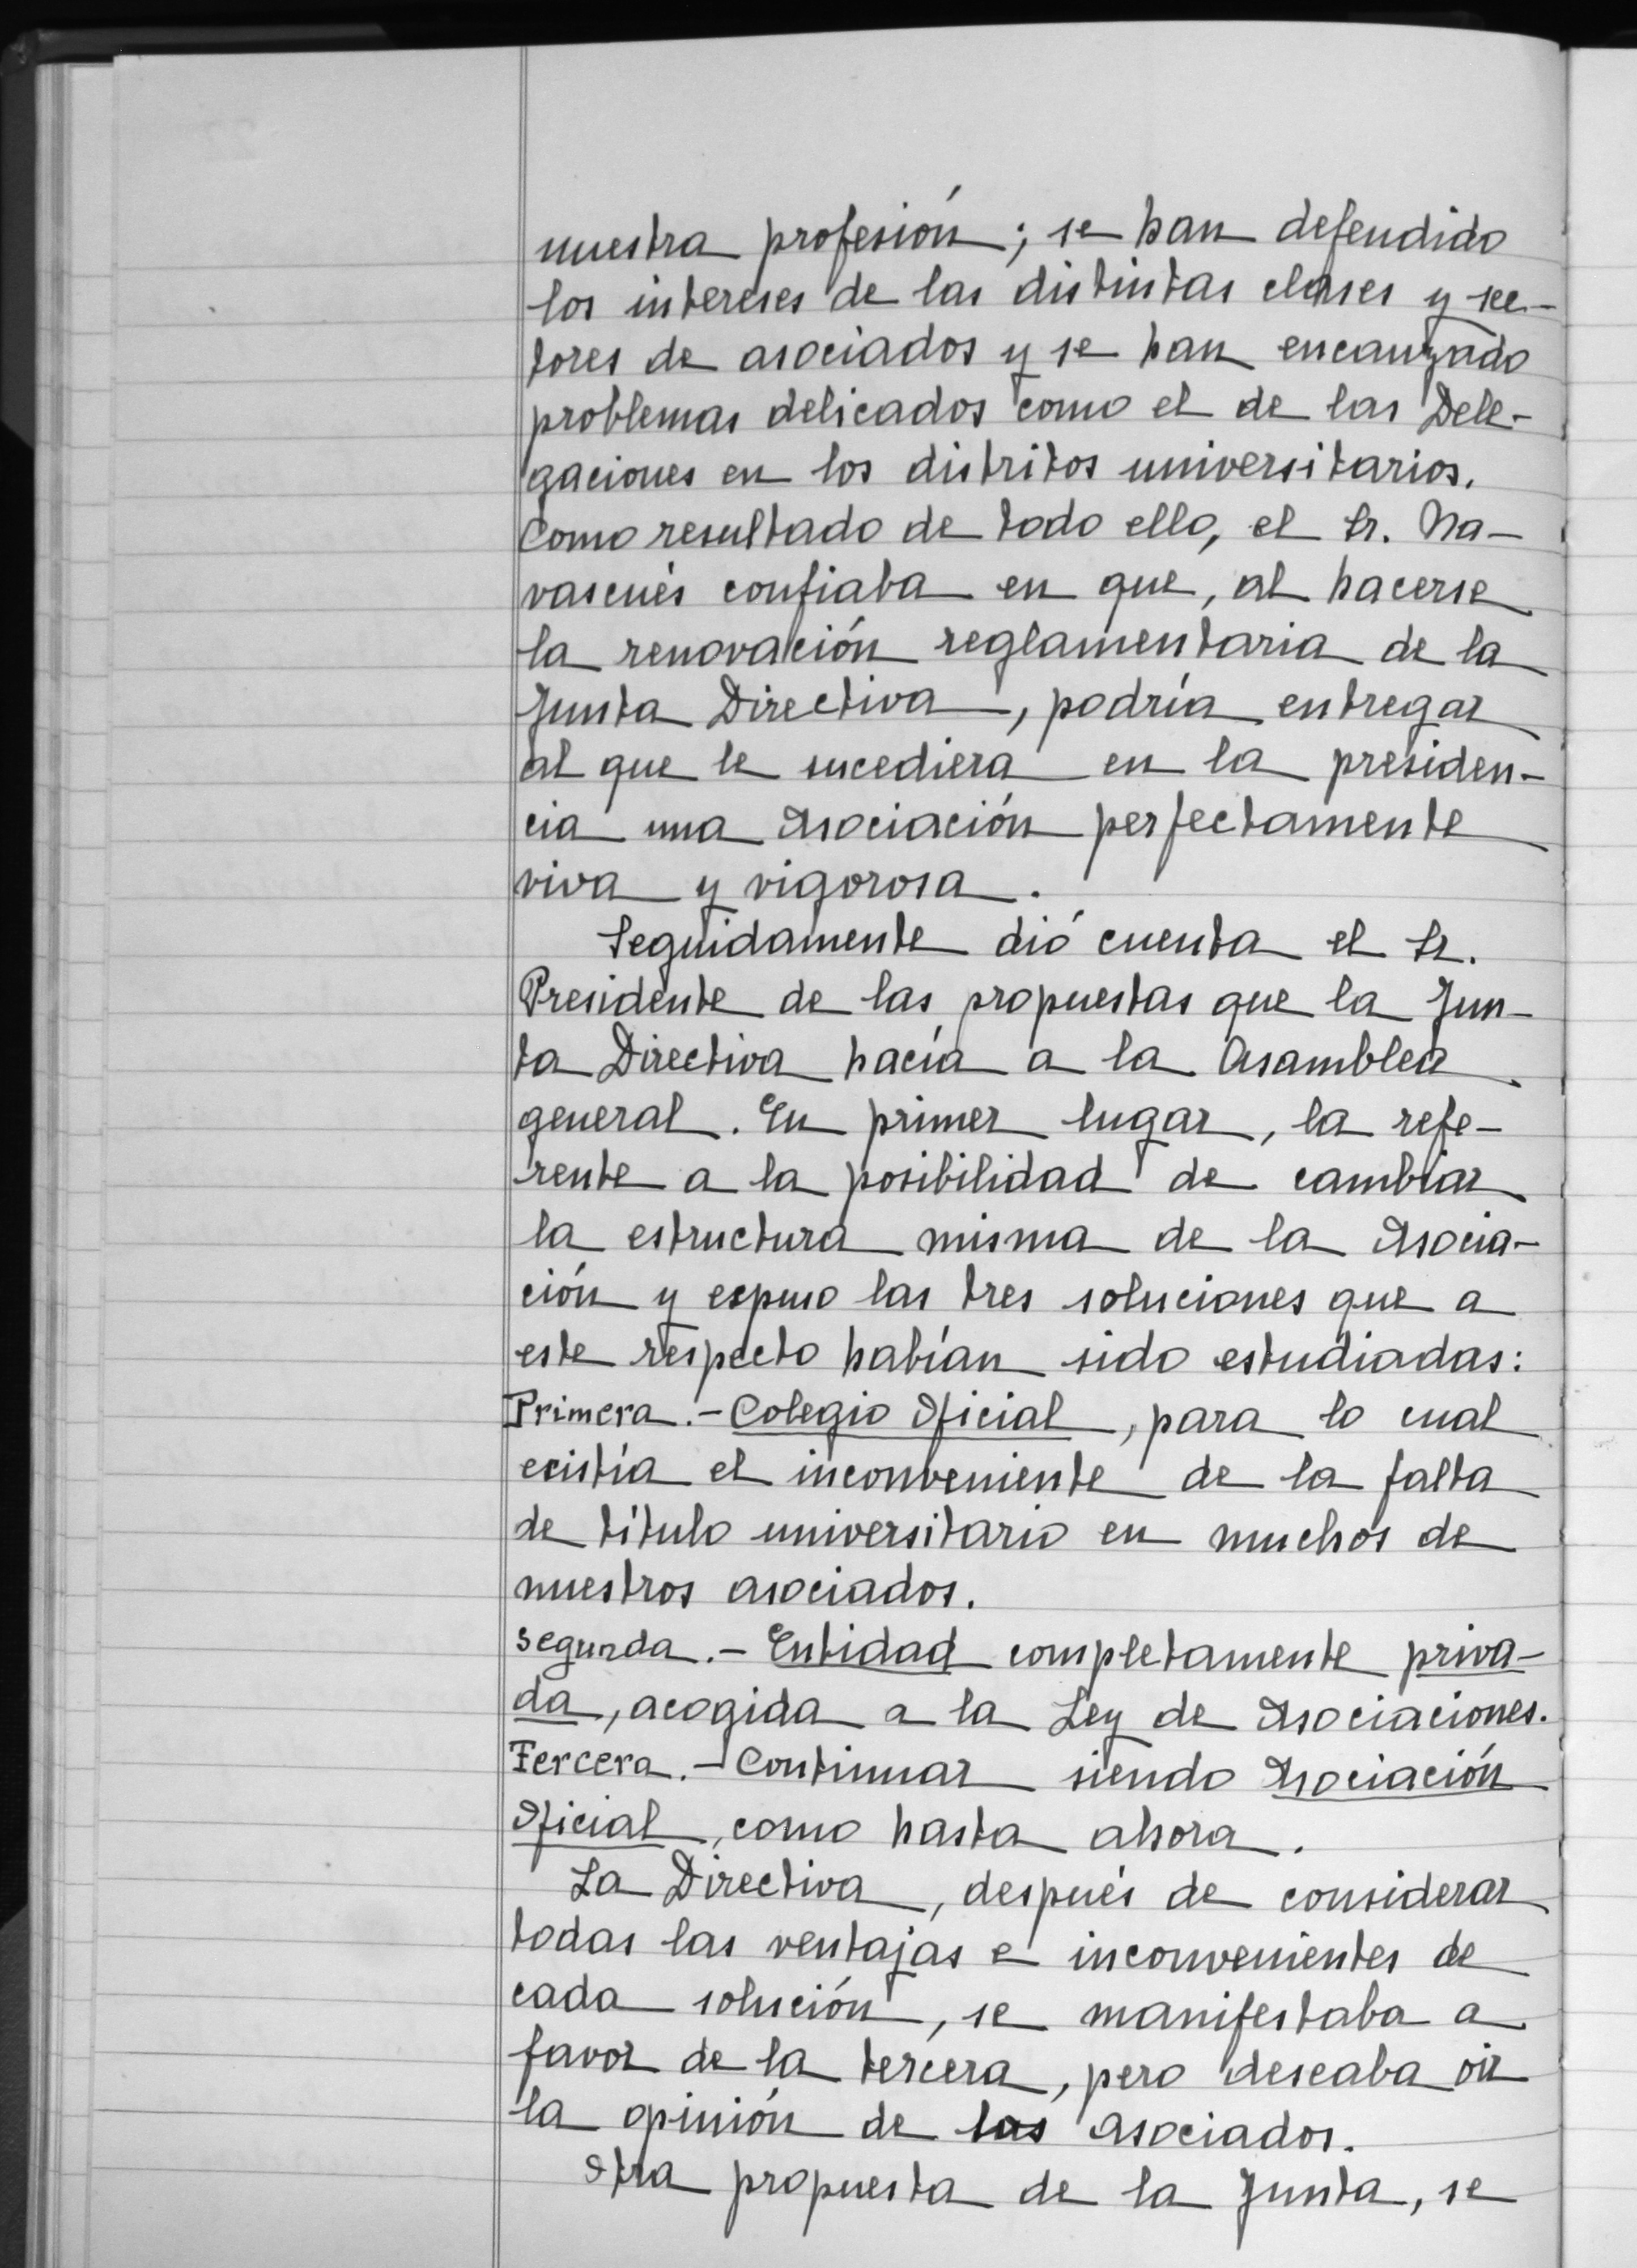 nuestra profesión; se han defendido
los intereses de las distintas clases y sec-
tores de asociados y se han encauzado
problemas delicados como el de las Dele-
gaciones en los distritos universitarios.
Como resultado de todo ello, el Sr. Na-
vascués confiaba en que, al hacerse
la renovación reglamentaria de la
Junta Directiva, podría entregar
al que le sucediera en la presiden-
cia una Asociación perfectamente
viva y vigorosa.
Seguidamente dió cuenta el Sr.
Presidente de las propuestas que la Jun-
ta Directiva hacía a la Asamblea
general. En primer lugar, la refe-
rente a la posibilidad de cambiar
la estructura misma de la Asocia-
ción y expuso las tres soluciones que a
este respecto habían sido estudiadas:
Primera.- Colegio Oficial, para lo cual
existía el inconveniente de la falta
de título universitario en muchos de
nuestros asociados.
Segunda.- Entidad completamente priva-
da, acogida a la Ley de Asociaciones.
Tercera.- Continuar siendo Asociación
Oficial, como hasta ahora.
La Directiva, después de considerar
todas las ventajas e inconvenientes de
cada solución, se manifestaba a
favor de la tercera, pero deseaba oir
la opinión de los Asociados.
Otra propuesta de la Junta, se